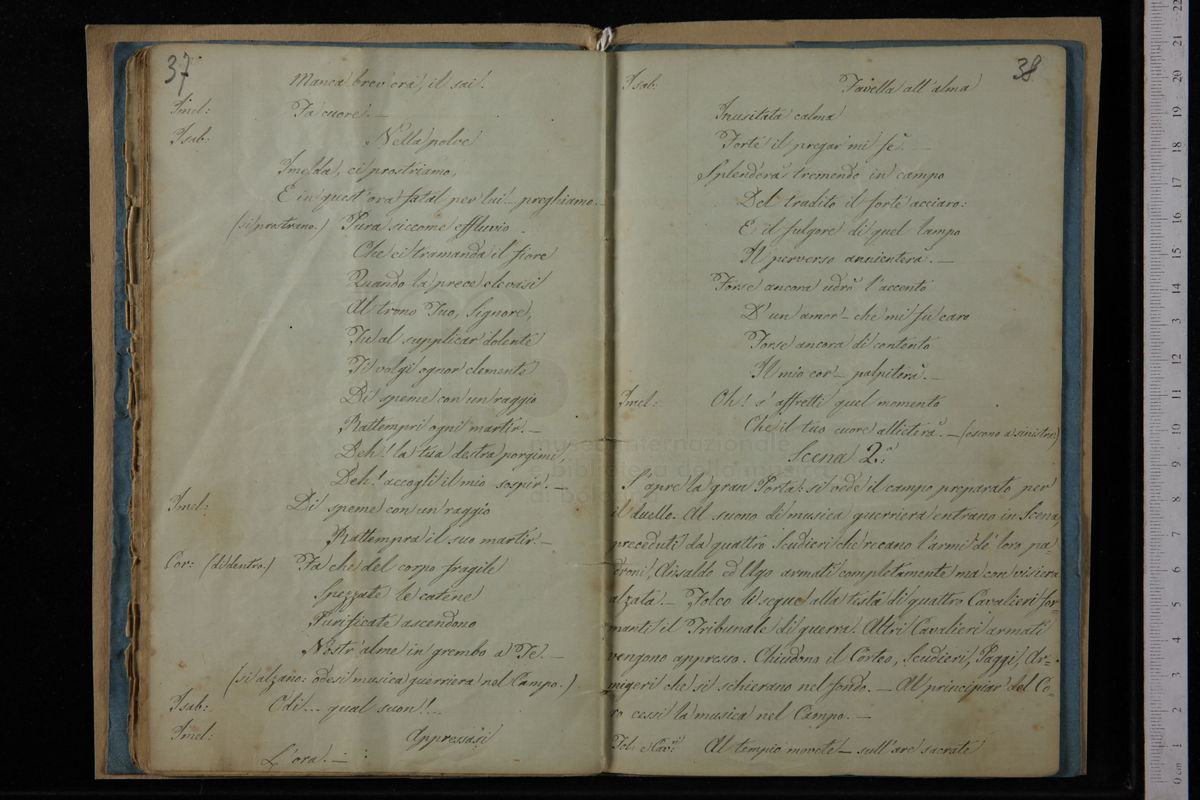 37
Manca brev'ora, il sai!
Imel: Fa cuore! —
Isab: Nella polve
Imelda, ci prostriamo,
E in quest'ora fatal per lui... preghiamo. —
(si prostrano.) Pura siccome effluvio
Che ci tramanda il fiore
Quando la prece elevasi
Al trono Tuo, Signore,
Tu al supplicar dolente
Ti volgi ognor clemente
Di speme con un raggio
Rattempri ogni martir. —
Deh! la tua destra porgimi,
Deh! accogli il mio sospir! —
Imel: Di speme con un raggio
Rattempra il suo martir. —
Cor: (di dentro.) Fa che del corpo fragile
Spezzate le catene
Purificate ascendono
Nostr'alme in grembo a Te. —
(si alzano: odesi musica guerriera nel Campo.)
Isab: Odi... qual suon!...
Imel: Appressasi
L'ora! —
38
Isab: Favella all'alma
Inusitata calma
Forte il pregar mi fè. —
Splenderà tremendo in campo
Del tradito il forte acciaro:
E il fulgore di quel lampo
Il perverso annienterà. —
Forse ancora udrò l'accento
D'un amor — che mi fu caro
Forse ancora di contento
Il mio cor — palpiterà. —
Imel: Oh! s'affretti quel momento
Che il tuo cuore allieterà. — (escono a sinistra)
Scena 2.a
S'apre la gran Porta: si vede il campo preparato per
il duello. Al suono di musica guerriera entrano in Scena,
preceduti da quattro Scudieri che recano l'armi de' loro pa-
droni, Arisaldo ed Ugo armati completamente ma con visiera
alzata. — Folco li segue alla testa di quattro Cavalieri for-
manti il Tribunale di guerra. Altri Cavalieri armati
vengono appresso. Chiudono il Corteo, Scudieri, Paggi, Ar-
migeri che si schierano nel fondo. — Al principiar del Co-
ro cessi la musica nel Campo. —
Fol: e Cav:ri Al tempio movete — sull'are sacrate
museo internazionale
e biblioteca della musica
di bologna